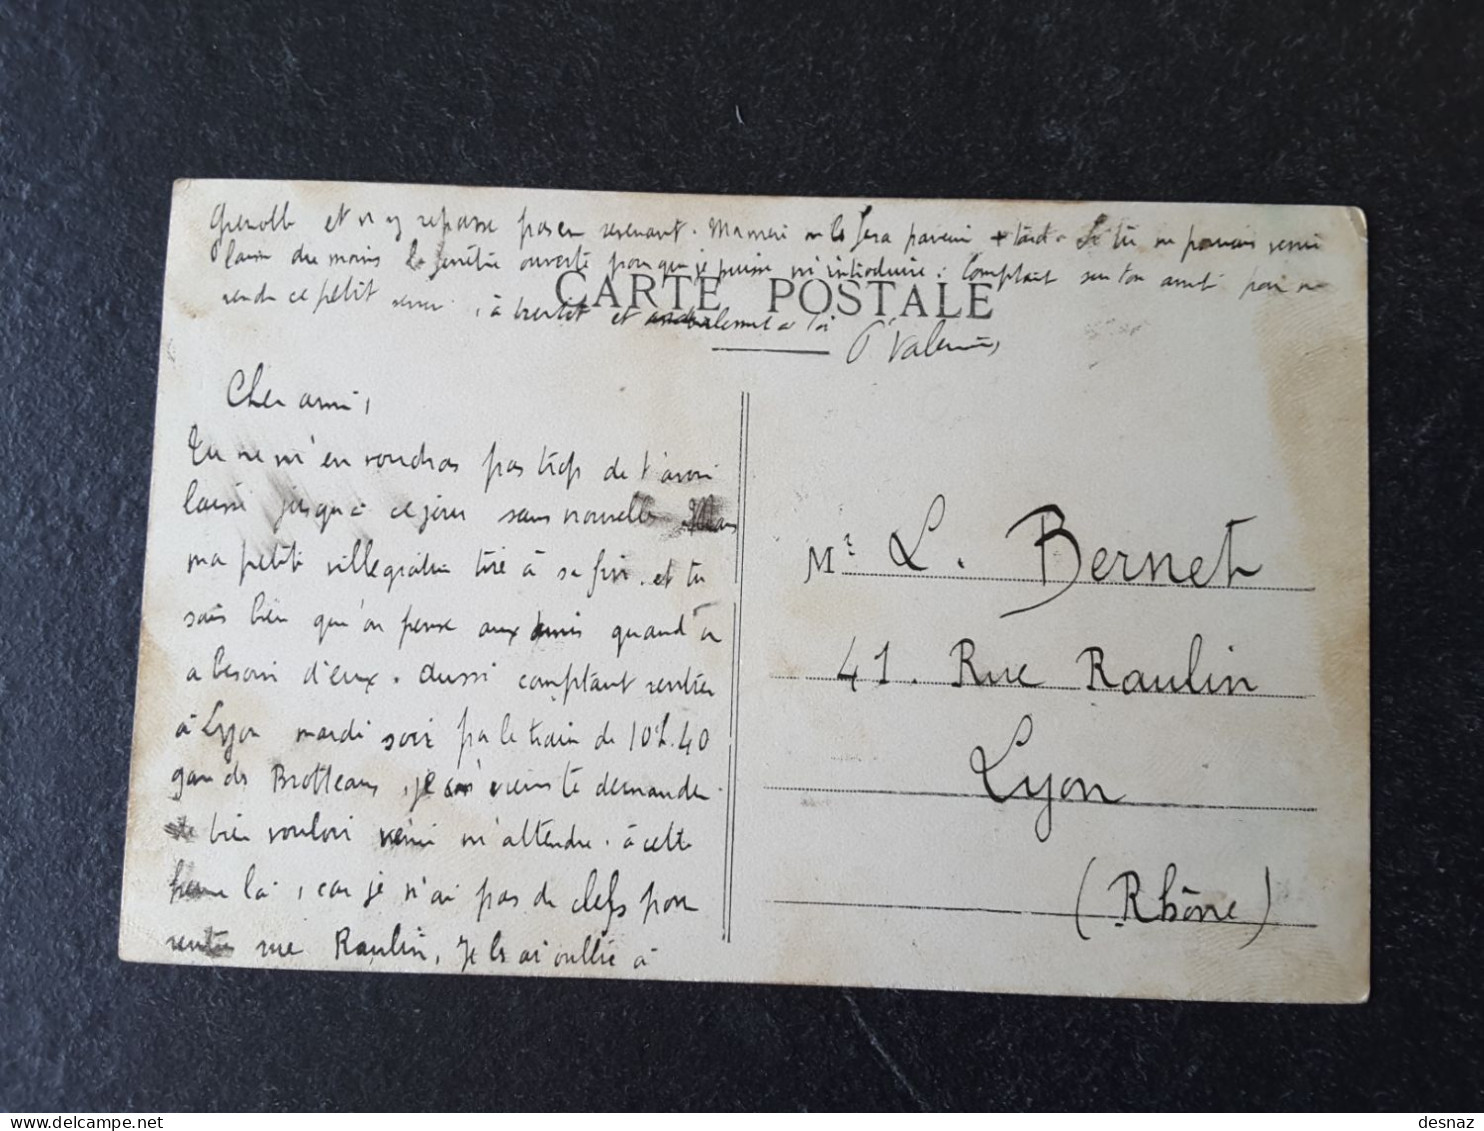 Cher ami,
Tu ne m'en voudras pas trop de t'avoir
laissé jusqu'à ce jour sans nouvelle Mais
ma petite villégiature tire à sa fin. et tu
sais bien qu'on pense aux amis quand on
a besoin d'eux. Aussi comptant rentrer
à Lyon mardi soir par le train de 10h.40
gare des Brotteaux, je viens te demander
de bien vouloir venir m'attendre. à cette
heure là, car je n'ai pas de clefs pour
rentrer rue Raulin, Je les ai oublié à
Grenoble et n'y repasse pas en revenant. Ma mère me les fera parvenir + tard. Si tu ne pouvais venir
laisse du moins la fenêtre ouverte pour que je puisse m'introduire. Comptant sur ton amitié pour me
rendre ce petit service, à bientôt et à toi
P Valen
CARTE POSTALE
Mr L. Bernet
41. Rue Raulin
Lyon
(Rhône)
desnaz